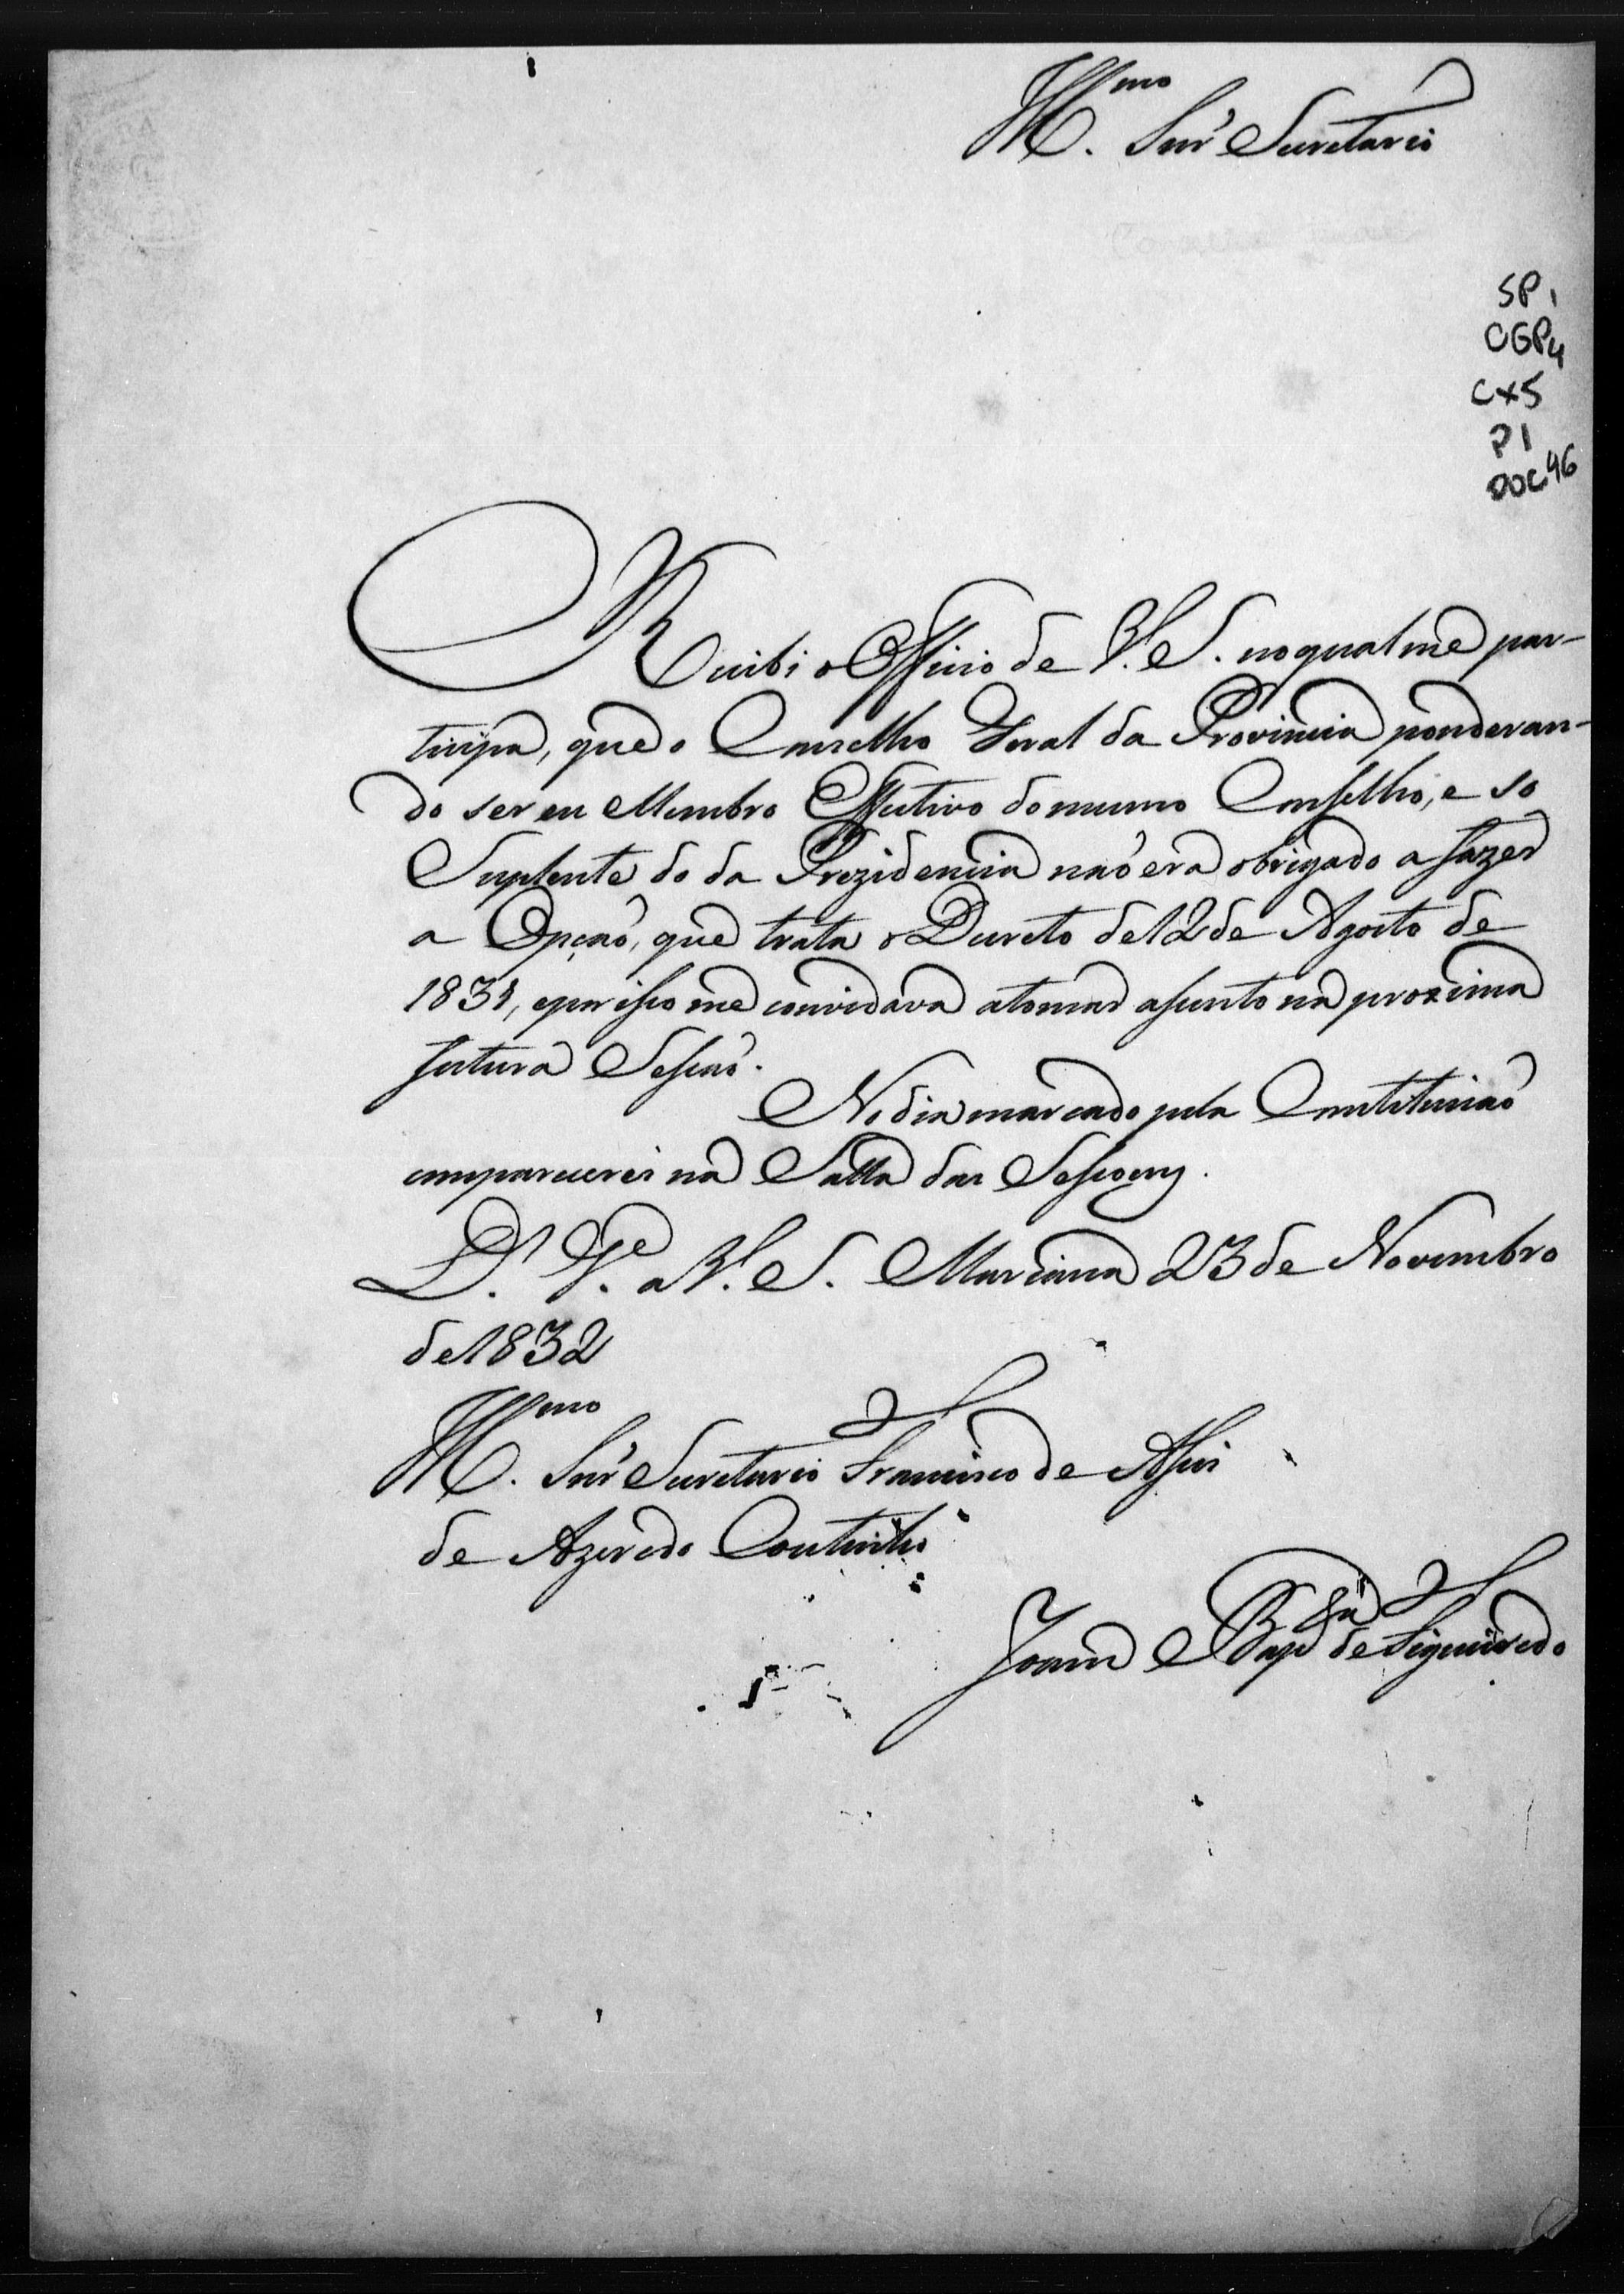 Ill.mo Snr' Secretario
SP1
CGP4
CX5
P1
DOC46
Recibi o Officio de V. S. no qual me par-
ticipa, que o Conselho Geral da Provincia ponderan-
do ser eu Membro Effectivo do mesmo Conselho, e so
Suplente do da Prezidencia naõ era obrigado a fazer
a Opçaõ, que trata o Decreto de 12 de Agosto de
1831, e por isso me convidava a tomar assento na proxima
futura Sessaõ.
No dia marcado pela Constituiçaõ
comparecerei na Salla das Sessoens.
D.s G.e a V. S. Marianna 23 de Novembro
de 1832
Ill.mo Snr' Secretario Francisco de Assis
de Azeredo Coutinho
Joam Bap.ta de Figueiredo